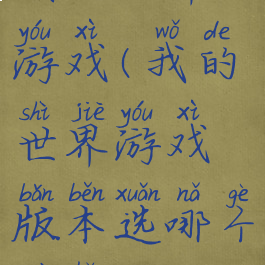 yóu xì wǒ de
游戏(我的
shì jiē yóu xì
世界游戏
bǎn běn xuǎn nǎ gè
版本选哪个